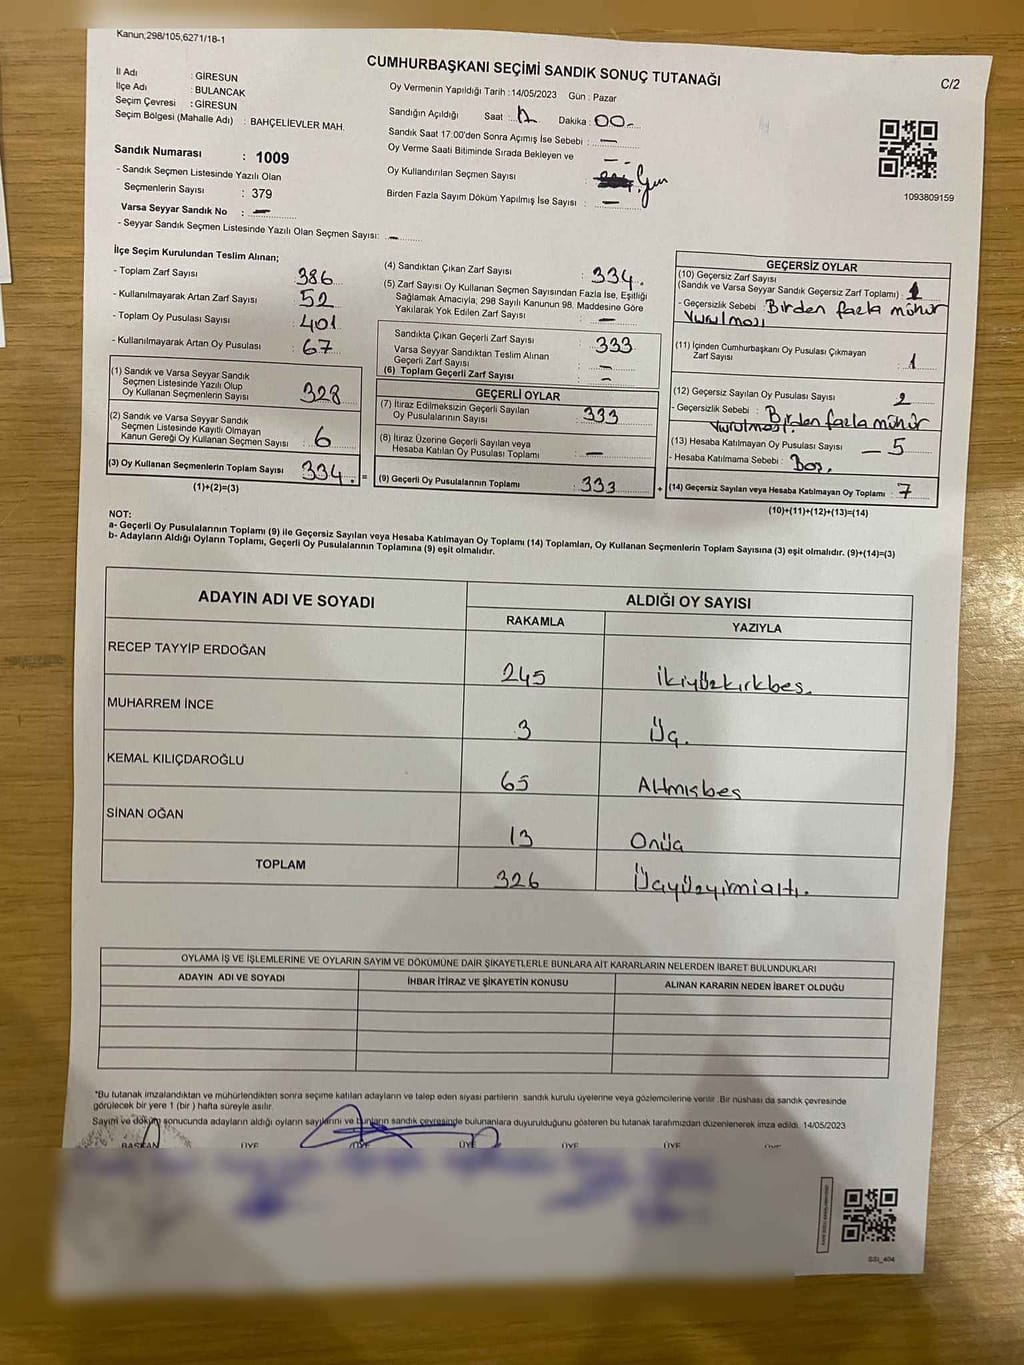 Kanun;298/105,6271/18-1
CUMHURBAŞKANI SEÇİMİ SANDIK SONUÇ TUTANAĞI
C/2
İl Adı : GİRESUN
İlçe Adı : BULANCAK
Seçim Çevresi : GİRESUN
Seçim Bölgesi (Mahalle Adı) : BAHÇELİEVLER MAH.
Sandık Numarası : 1009
- Sandık Seçmen Listesinde Yazılı Olan
Seçmenlerin Sayısı : 379
Varsa Seyyar Sandık No : —
- Seyyar Sandık Seçmen Listesinde Yazılı Olan Seçmen Sayısı: —
Oy Vermenin Yapıldığı Tarih :14/05/2023 Gün : Pazar
Sandığın Açıldığı Saat : Dakika : 00-
Sandık Saat 17:00'den Sonra Açımış İse Sebebi : —
Oy Verme Saati Bitiminde Sırada Bekleyen ve
Oy Kullandırılan Seçmen Sayısı :
Birden Fazla Sayım Döküm Yapılmış İse Sayısı : —
1093809159
İlçe Seçim Kurulundan Teslim Alınan;
- Toplam Zarf Sayısı : 386
- Kullanılmayarak Artan Zarf Sayısı : 52
- Toplam Oy Pusulası Sayısı : 401
- Kullanılmayarak Artan Oy Pusulası : 67
(1) Sandık ve Varsa Seyyar Sandık
Seçmen Listesinde Yazılı Olup
Oy Kullanan Seçmenlerin Sayısı : 328
(2) Sandık ve Varsa Seyyar Sandık
Seçmen Listesinde Kayıtlı Olmayan
Kanun Gereği Oy Kullanan Seçmen Sayısı : 6
(3) Oy Kullanan Seçmenlerin Toplam Sayısı : 334. =
(1)+(2)=(3)
(4) Sandıktan Çıkan Zarf Sayısı : 334.
(5) Zarf Sayısı Oy Kullanan Seçmen Sayısından Fazla İse, Eşitliği
Sağlamak Amacıyla, 298 Sayılı Kanunun 98. Maddesine Göre
Yakılarak Yok Edilen Zarf Sayısı : —
Sandıkta Çıkan Geçerli Zarf Sayısı : 333
Varsa Seyyar Sandıktan Teslim Alınan
Geçerli Zarf Sayısı : —
(6) Toplam Geçerli Zarf Sayısı : —
GEÇERLİ OYLAR
(7) İtiraz Edilmeksizin Geçerli Sayılan
Oy Pusulalarının Sayısı : 333
(8) İtiraz Üzerine Geçerli Sayılan veya
Hesaba Katılan Oy Pusulası Toplamı : —
(9) Geçerli Oy Pusulalarının Toplamı : 333 +
GEÇERSİZ OYLAR
(10) Geçersiz Zarf Sayısı
(Sandık ve Varsa Seyyar Sandık Geçersiz Zarf Toplamı) : 1
- Geçersizlik Sebebi : Birden fazla mühür
Vurulması
(11) İçinden Cumhurbaşkanı Oy Pusulası Çıkmayan
Zarf Sayısı : 1
(12) Geçersiz Sayılan Oy Pusulası Sayısı : 2
- Geçersizlik Sebebi : Birden fazla mühür
Vurulması.
(13) Hesaba Katılmayan Oy Pusulası Sayısı : — 5
- Hesaba Katılmama Sebebi : Boş.
(14) Geçersiz Sayılan veya Hesaba Katılmayan Oy Toplamı : 7
(10)+(11)+(12)+(13)=(14)
NOT:
a- Geçerli Oy Pusulalarının Toplamı (9) ile Geçersiz Sayılan veya Hesaba Katılmayan Oy Toplamı (14) Toplamları, Oy Kullanan Seçmenlerin Toplam Sayısına (3) eşit olmalıdır. (9)+(14)=(3)
b- Adayların Aldığı Oyların Toplamı, Geçerli Oy Pusulalarının Toplamına (9) eşit olmalıdır.
ADAYIN ADI VE SOYADI
ALDIĞI OY SAYISI
RAKAMLA YAZIYLA
RECEP TAYYİP ERDOĞAN 245 ikiyüzkırkbeş.
MUHARREM İNCE 3 Üç.
KEMAL KILIÇDAROĞLU 65 Altmışbeş
SİNAN OĞAN 13 Onüç
TOPLAM 326 Üçyüzyirmialtı.
OYLAMA İŞ VE İŞLEMLERİNE VE OYLARIN SAYIM VE DÖKÜMÜNE DAİR ŞİKAYETLERLE BUNLARA AİT KARARLARIN NELERDEN İBARET BULUNDUKLARI
ADAYIN ADI VE SOYADI İHBAR İTİRAZ VE ŞİKAYETİN KONUSU ALINAN KARARIN NEDEN İBARET OLDUĞU
*Bu tutanak imzalandıktan ve mühürlendikten sonra seçime katılan adayların ve talep eden siyasi partilerin sandık kurulu üyelerine veya gözlemcilerine verilir. Bir nüshası da sandık çevresinde
görülecek bir yere 1 (bir ) hafta süreyle asılır.
Sayım ve döküm sonucunda adayların aldığı oyların sayılarını ve bunların sandık çevresinde bulunanlara duyurulduğunu gösteren bu tutanak tarafımızdan düzenlenerek imza edildi. 14/05/2023
BAŞKAN ÜYE ÜYE ÜYE ÜYE ÜYE
SSI_404